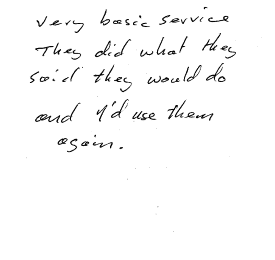 very basic service
They did what they
said they would do
and I'd use them
again.